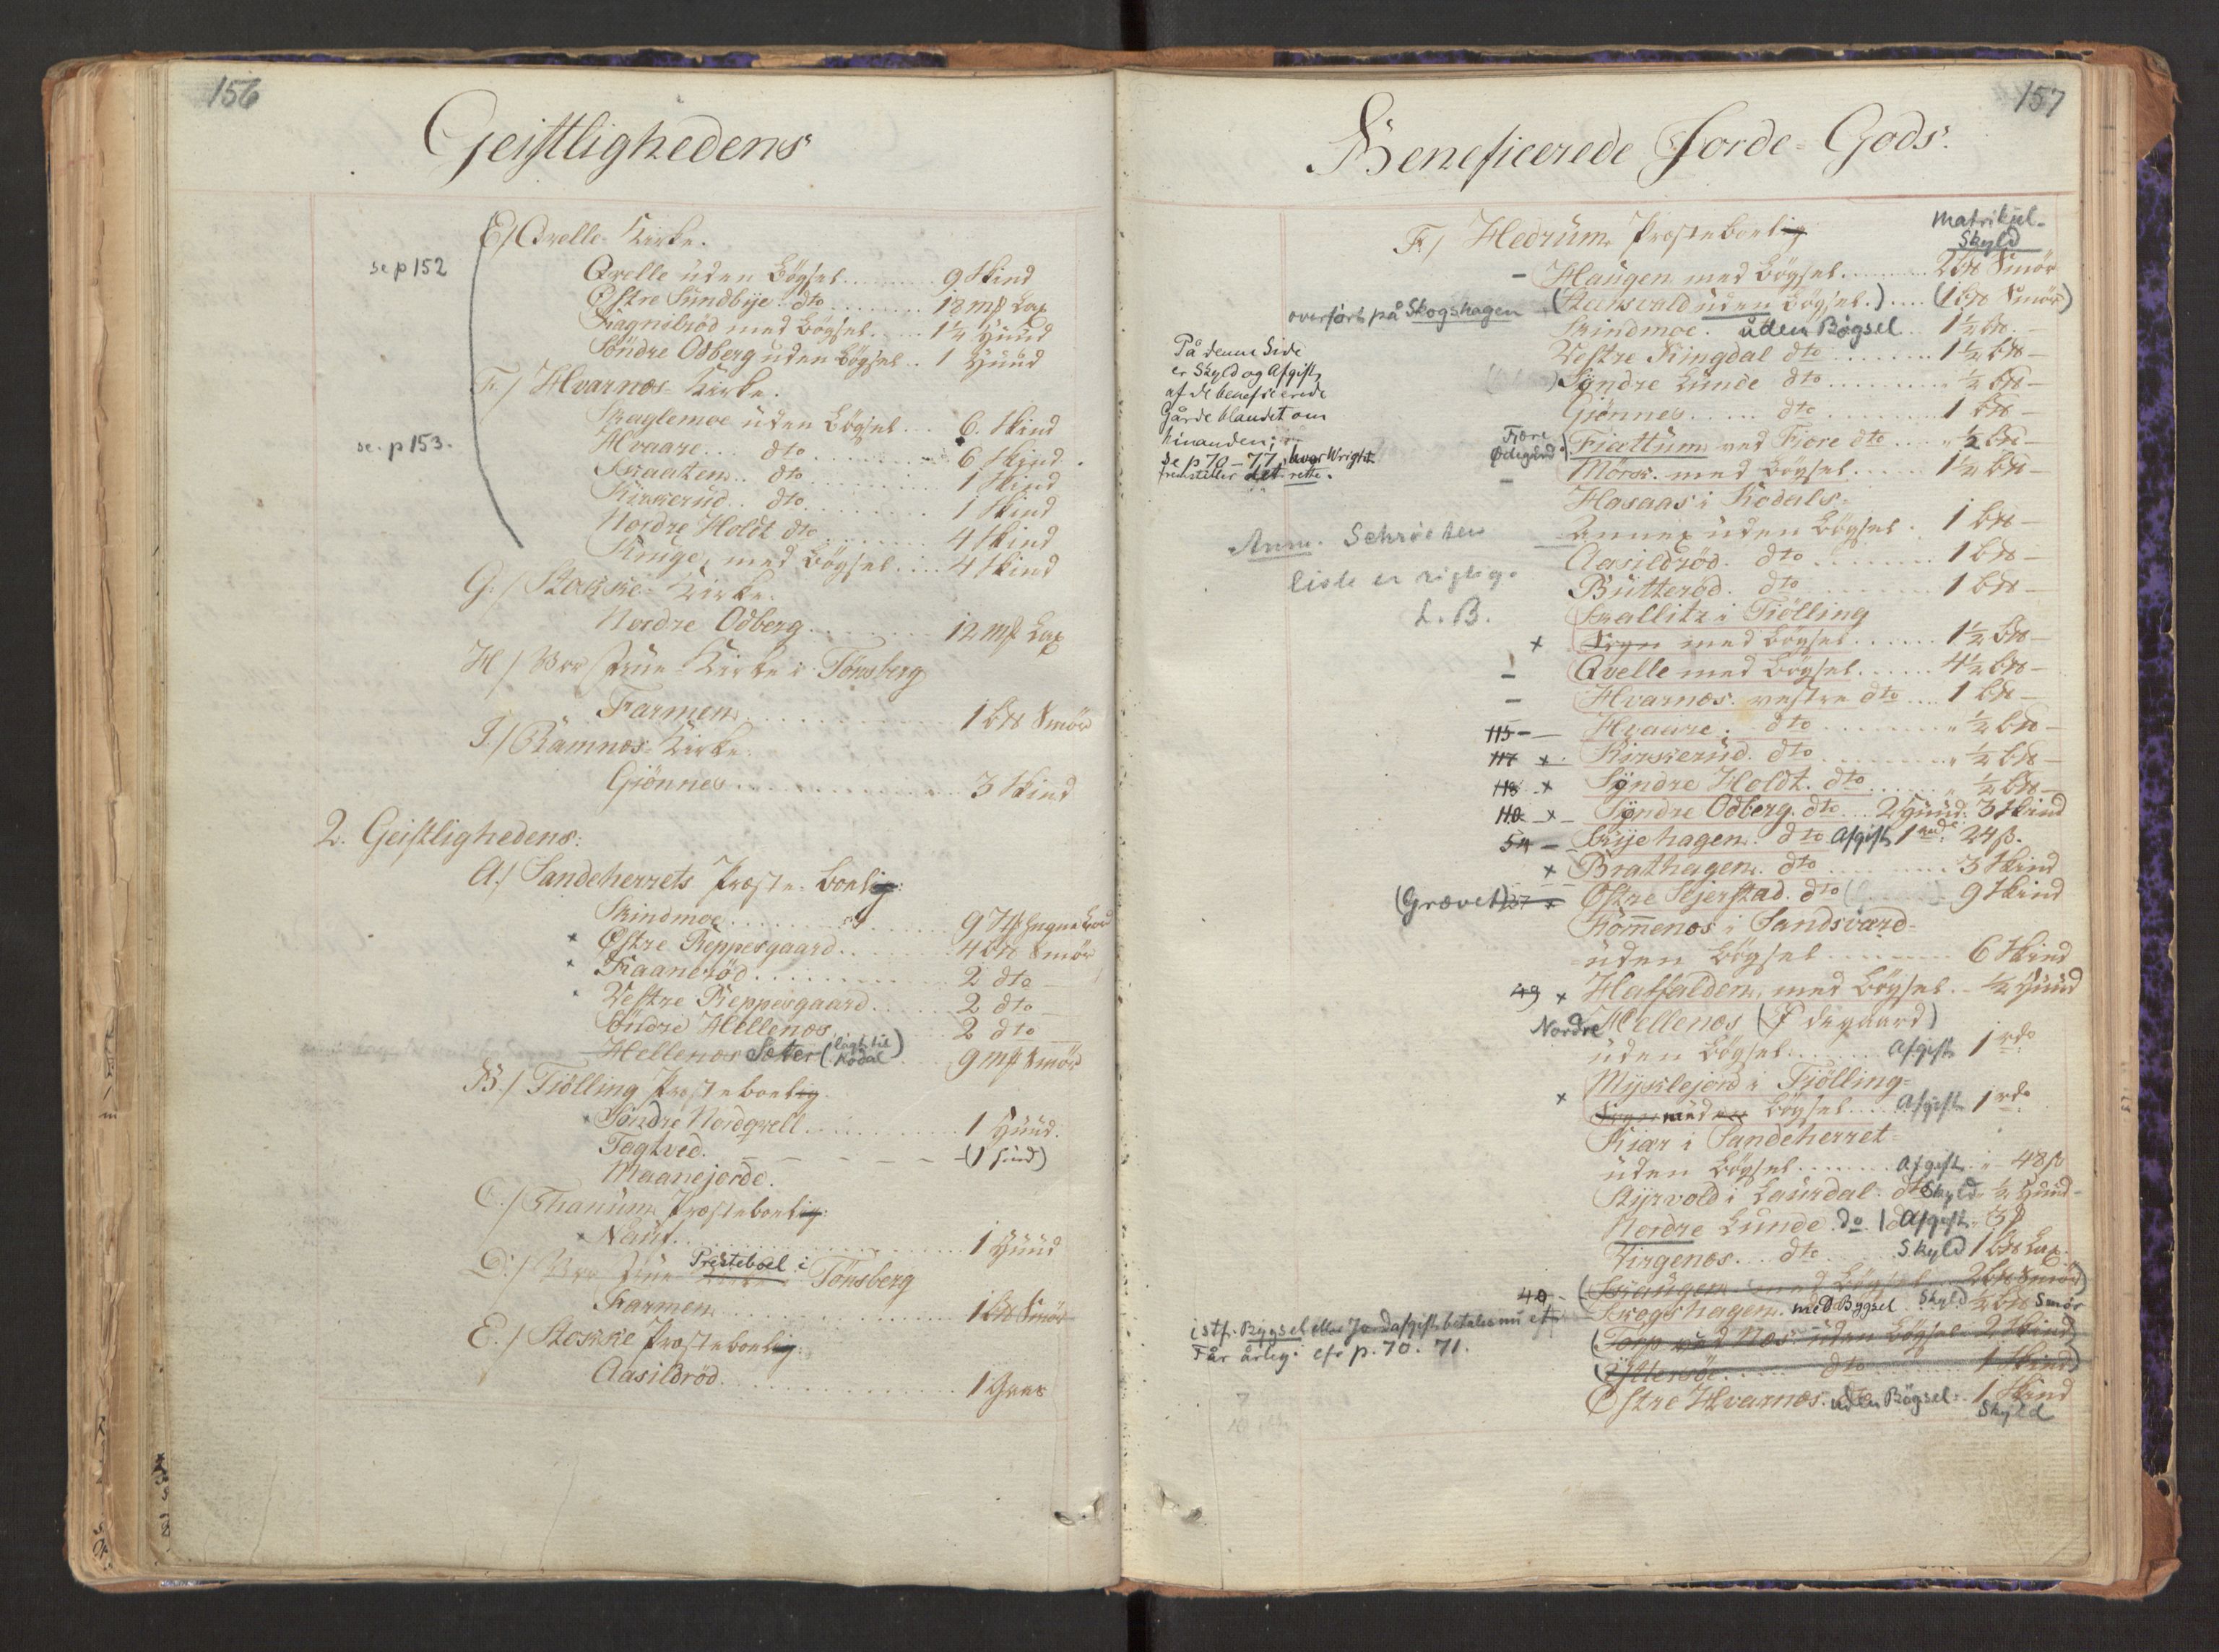 156
Geistlighedens
E/ Qvelle Kirke.
se p 152
Qvelle uden Bøgsel ........ 9 Skind
Østre Sundbye dto ........ 18 mp Lax
Ragnsbrød med Bøgsel .... 1½ Huud
Söndre Odberg uden Bøgsel .. 1 Huud
F./ Hvarnes Kirke.
Skaglemoe uden Bögsel ... 6 Skind
se. p 153.
Hvaare ... dto ........ 6 Skind
Skaaten .. dto ........ 1 Skind
Kirkerud .. dto ........ 1 Skind
Nordre Holdt dto ....... 4 Skind
Kruge, med Bögsel .... 4 Skind
G:/ Stokke Kirke.
Nordre Odberg ........ 12 mp Lax
H/ Vor Frue Kirke i Tönsberg
Farmen ............ 1 bd Smör
I./ Ramnes Kirke.
Gjönnes ............ 3 Skind
2. Geistlighedens:
A./ Sandeherrets Præste-bolig:
Skindmoe ............ 9
× Østre Reppesgaard ........ 4 bd Smör
× Fraanerød ............ 2 dto
× Vestre Reppesgaard ...... 2 dto
Söndre Hellenes ........ 2 dto
Hellenes Sæter (lagt til Kodal) .. 9 mp Smör
B./ Tiölling Præstebolig.
× Söndre Nordqvell ........ 1 Huud.
Tagtved. – – – – – (1 Hud)
Maanejorde.
C./ Thanum Præstebolig:
× Nalum ............ 1 Huud
D:/ Vor Frue Presteboel i Tönsberg
Farmen ............ 1 bd Smör
E./ Stokke Præstebolig:
Aasildrød ............ 1
157
Beneficerede Jorde-Gods.
Matrikul-
Skyld
F./ Hedrum Præstebolig
– Haugen med Bögsel ........ 2 bd Smör
overført på Skogshagen (uden Bögsel.) .... (1 bd Smör)
Skindmoe. uden Bögsel .. 1½ bd –
På denne Side
er Skyld og Afgift
af de beneficerede
Gårde blandet om
hinanden;
se p 70 – 77, hvor Wright
fremstiller det rette.
Vestre Ringdal dto ........ 1½ bd –
Syndre Lunde dto ........ ½ bd –
Gjönnes ..... dto ........ 1 bd –
Fjore Ødegård Fjattum ved Fjore dto .... ½ bd –
– Mörk. med Bögsel ...... 1½ bd –
Hasaas i Kodals
Annex uden Bögsel . 1 bd –
Anm. Schrøeters
liste er rigtig.
L. B.
Aasildrød. dto ........ 1 bd –
Butterød. dto ........ 1 bd –
Skallitz i Tiölling
× Sogn med Bögsel ...... 1½ bd –
– Qvelle med Bögsel ...... 4½ bd –
– Hvarnes. vestre dto .... 1 bd –
115 – Hvaare. dto ........ ½ bd –
117 × Kirkerud. dto ........ ½ bd –
118 × Syndre Holdt. dto ...... ½ bd –
110 × Syndre Odberg. dto ... 2 Huud: 3 Skind
54 – Skyehagen. dto Afgift 1 rd: 24 ß.
× Brathagen. dto ........ 3 Skind
(Grævet) 137 × Østre Sejerstad. dto 9 Skind
Kom̅enes i Sandsværd-
uden Bögsel ........ 6 Skind
49 × Halfalden, med Bögsel. – ½ Huud
Nordre Hellenes (Ødegaard)
uden Bögsel ...... Afgift 1 rdr
× Mysklejord i Tiölling-
Sogn med Bögsel .... Afgift 1 rdr
Kiær i Sandeherret
uden Bögsel ...... Afgift " 48 ß
Styrvold i Laurdal. dto Skyld ½ Huud –
Nordre Lunde. do Afgift
Virgenes ... dto ... Skyld 1 bd Lax.
(Skaugen med Bögsel .. 2 bd Smör)
40 – Skogshagen. med Bygsel Skyld ½ bd Smör
istf. Bygsel eller Jordafgift betales nu et
Får årlig. cfr p. 70. 71.
(Torp ved Næs uden Bögsel 2 Skind)
dto ....... 1 Skind)
Østre Hvarnes. uden Bögsel 1 Skind
Skyld